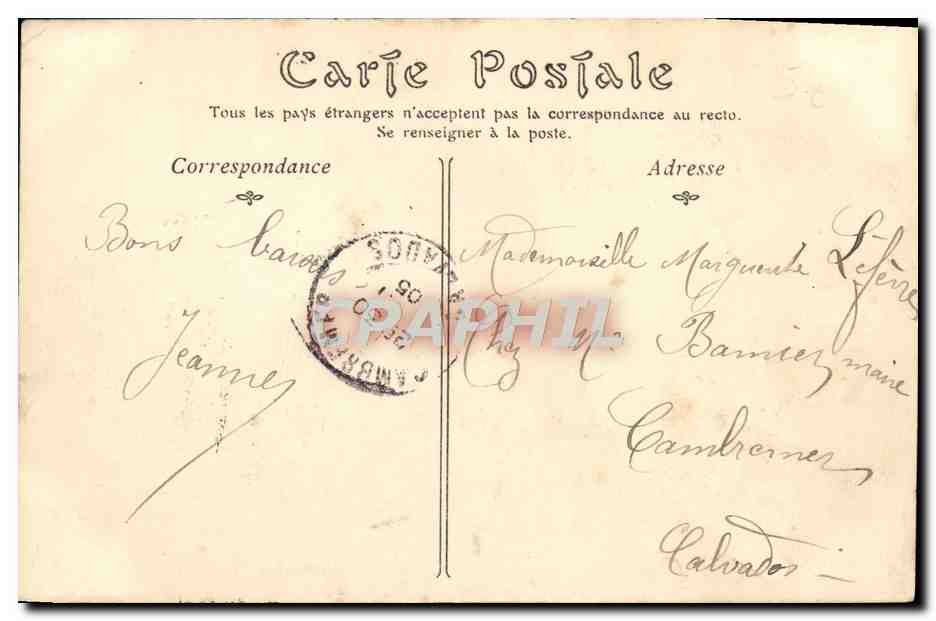 Carte Postale
Tous les pays étrangers n'acceptent pas la correspondance au recto.
Se renseigner à la poste.
Correspondance
Bons baisers
Jeanne
Adresse
Mademoiselle Marguerite Lefèvre
Chez Mr Bamier maire
Cambremer
Calvados
CAMBREMER
CALVADOS
05
CPAPHIL